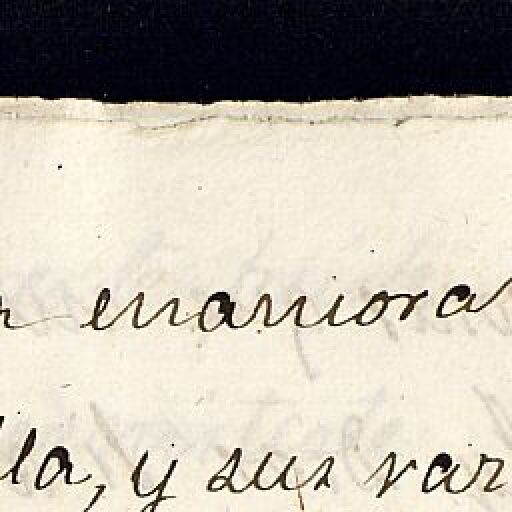 enamora
lla, y sus var